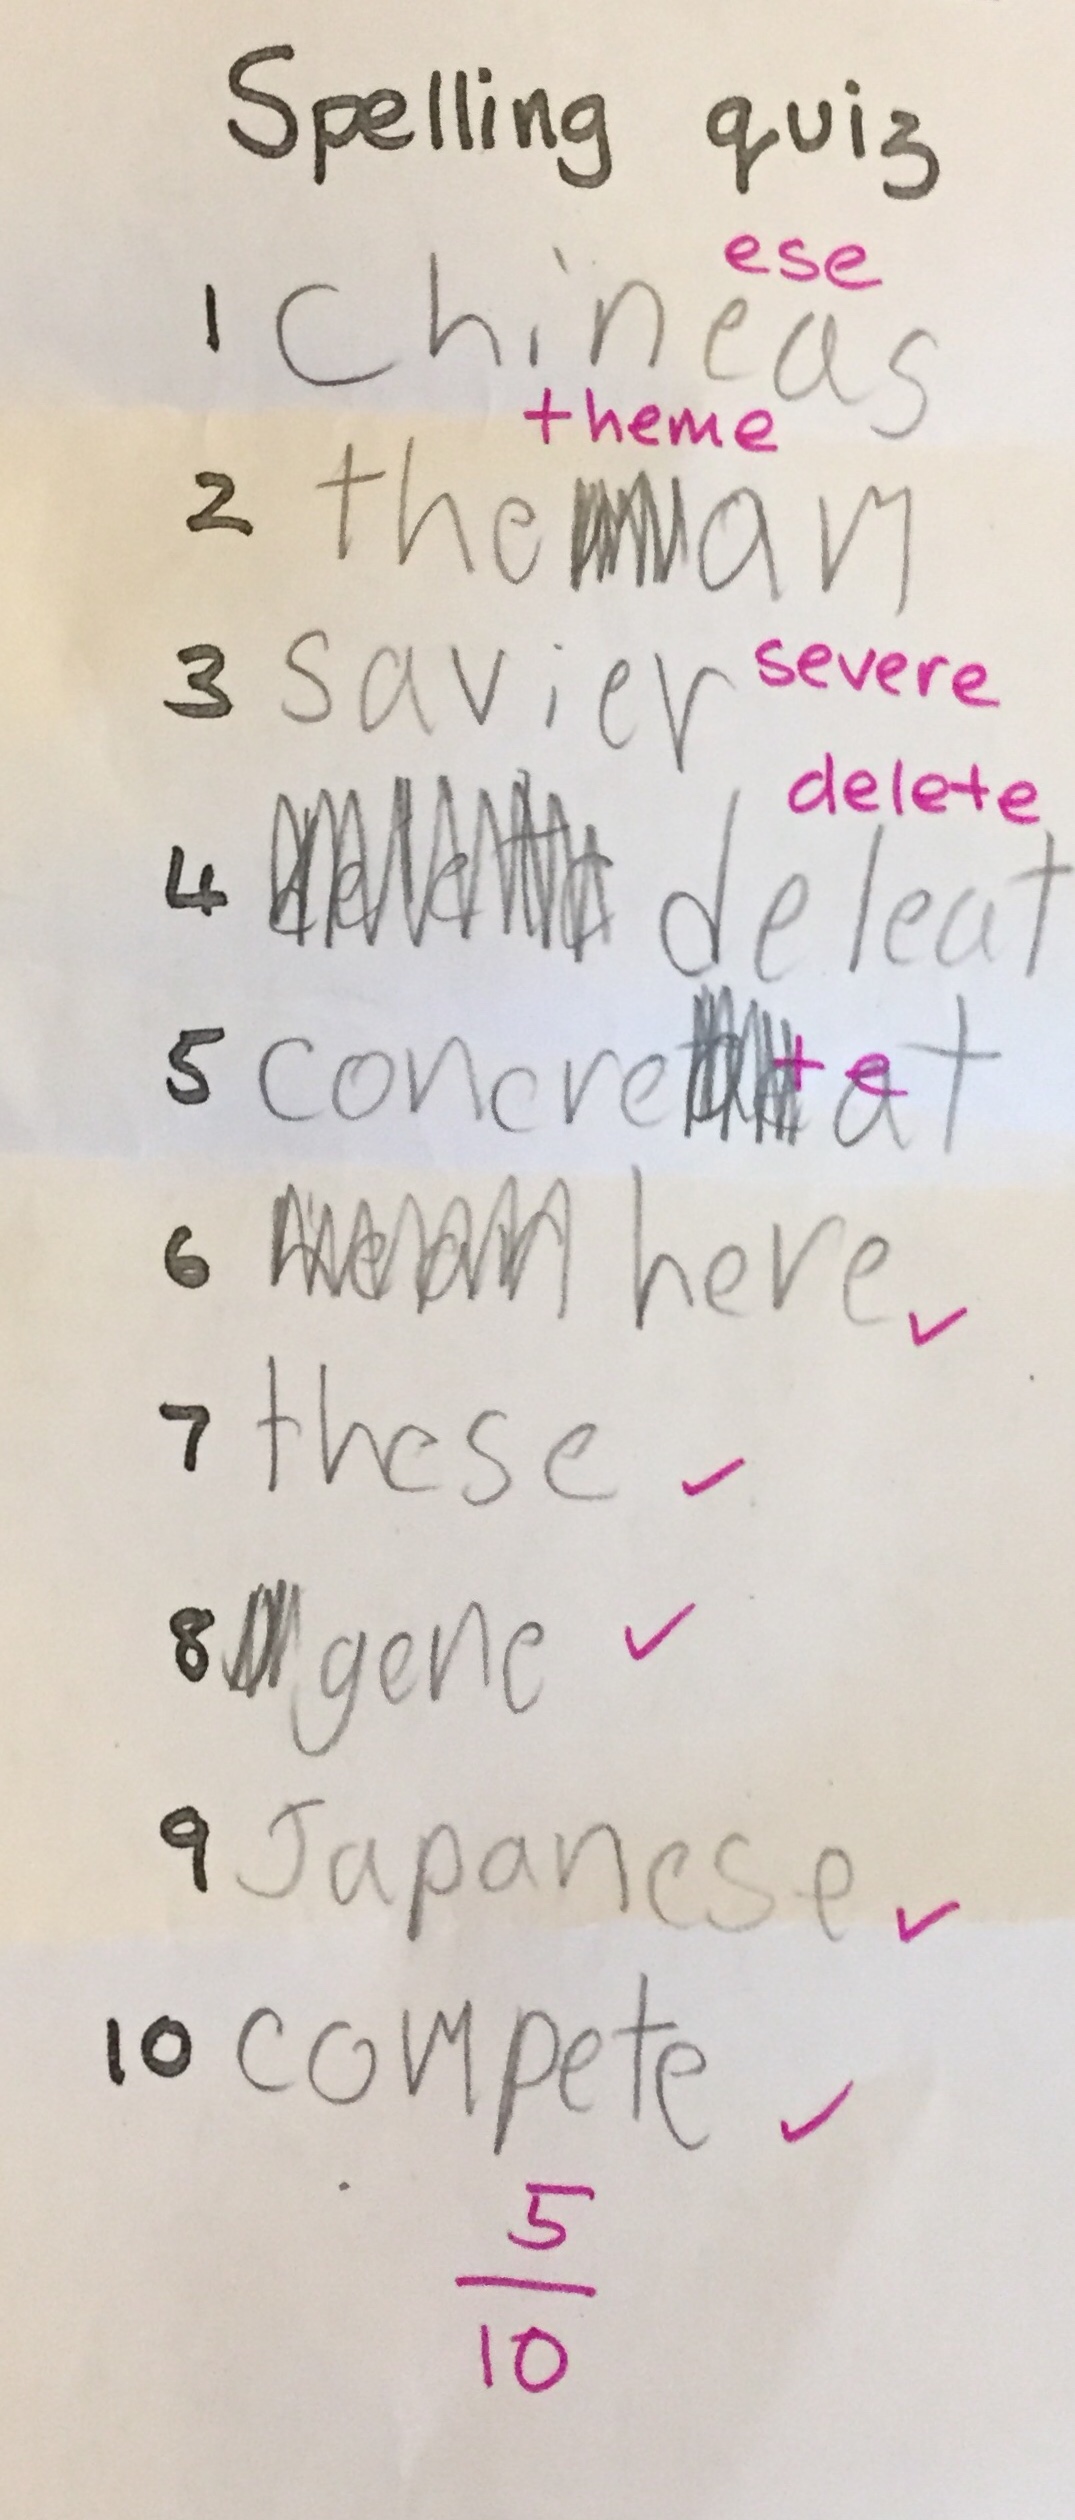 Spelling quiz
ese
1 chineas
theme
2 the am
3 savier severe
delete
4 deleat
5 concre at te
6 here ✓
7 these ✓
8 gene ✓
9 Japanese ✓
10 compete ✓
5
10